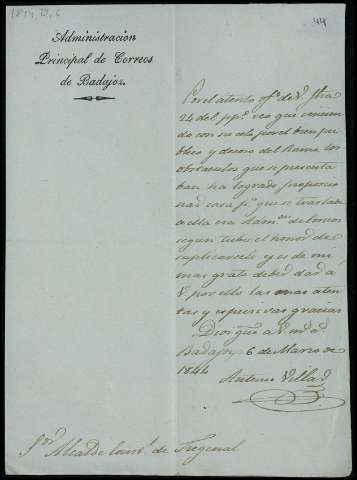 1844, 3, 6
44
Administración
Principal de Correos
de Badajoz.
Por el atento of.º de V. fha
24 del pp.º veo que vencien-
do con su celo por el bien pu-
blico y decoro del Ramo los
obstaculos que se presenta
ban ha logrado proporcio
nar casa p.ª que se traslade
a ella esa Adm.on de Correos
segun tube el honor de
suplicarselo y es de mi
mas grato deber dar á
V. por ello las mas aten
tas y espresivas gracias
Dios gue. a V. m.s a.s
Badajoz 6 de Marzo de
1844
Antonio Villar
Sor. Alcalde Const.l de Fregenal